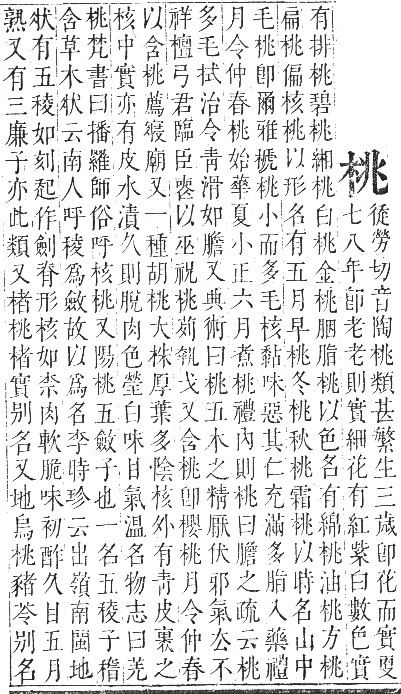 桃 徒勞切音陶桃類甚繁生三歲卽花而實
七八年卽老老則實細花有紅紫白數色實
有排桃碧桃緗桃白桃金桃胭脂桃以色名有綿桃油桃方桃
扁桃偏核桃以形名有五月早桃冬桃秋桃霜桃以時名山中
毛桃卽爾雅榹桃小而多毛核黏味惡其仁充滿多脂入藥禮
月令仲春桃始華夏小正六月煮桃禮內則桃曰膽之疏云桃
多毛拭治令靑滑如膽又典術曰桃五木之精厭伏邪氣厺不
祥檀弓君臨臣喪以巫祝桃茢執戈又含桃卽櫻桃月令仲春
以含桃薦寢廟又一種胡桃大株厚葉多陰核外有靑皮裹之
核中實亦有皮水漬久則脫肉色瑩白味甘氣溫名物志曰羌
桃梵書曰播羅師俗呼核桃又陽桃五斂子也一名五稜子嵇
含草木狀云南人呼稜爲斂故以爲名李時珍云出嶺南閩地
狀有五稜如刻起作劍脊形核如柰肉軟脆味初酢久甘五月
熟又有三廉子亦此類又楮桃楮實別名又地烏桃豬苓別名